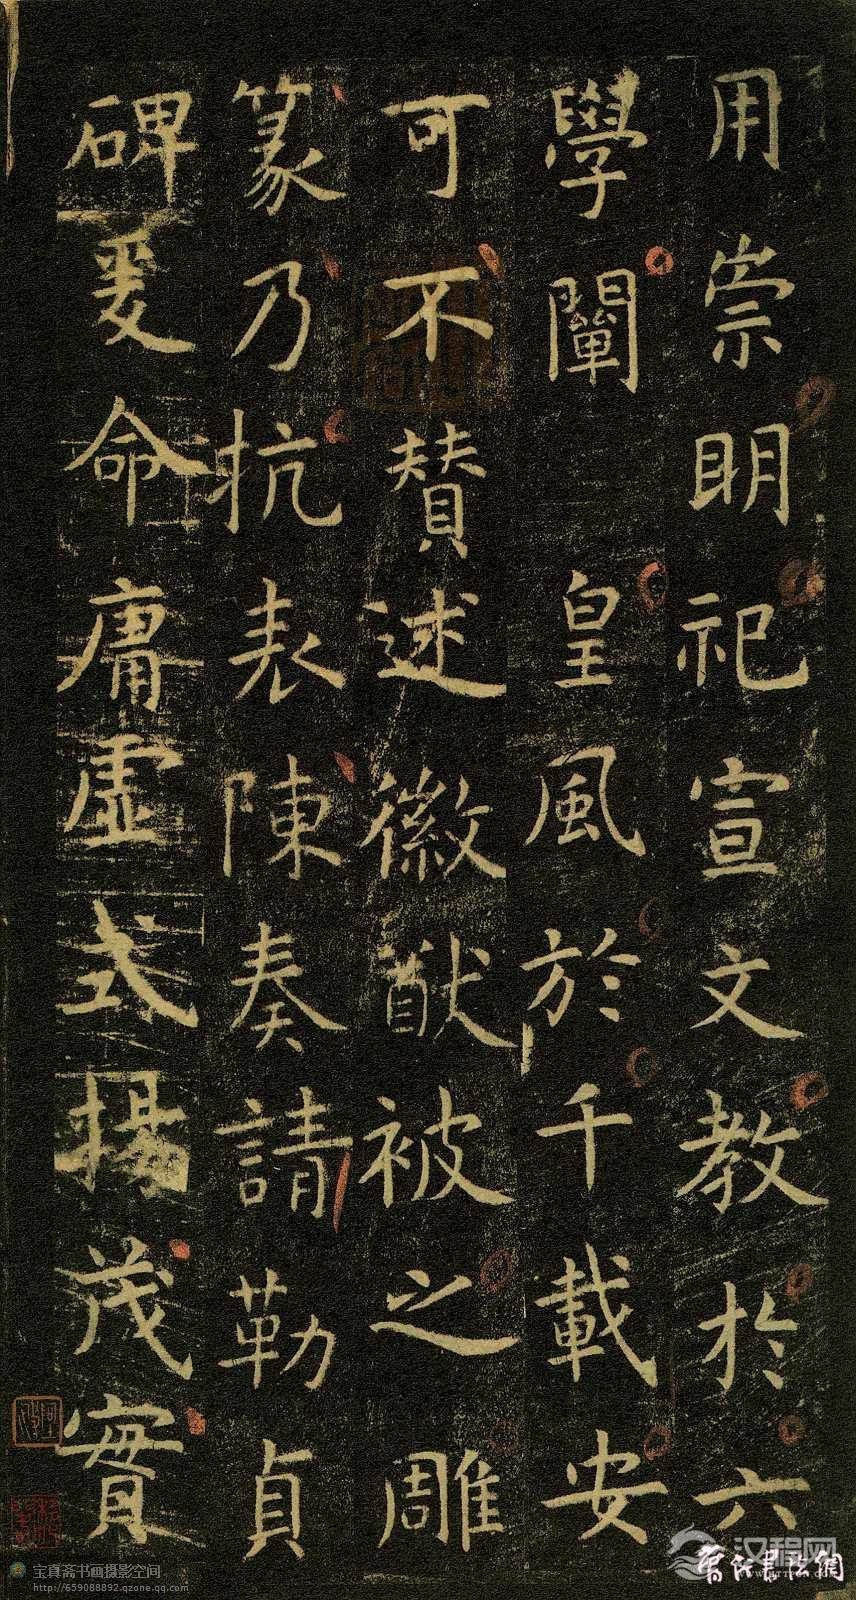 用崇明祀宣文教於六
學闡皇風於千載安
可不贊述徽猷被之雕
篆乃抗表陳奏請勒貞
碑爰命庸虛式揚茂實
宝真斋书画摄影空间
http://659088892.qzone.qq.com
汉程网